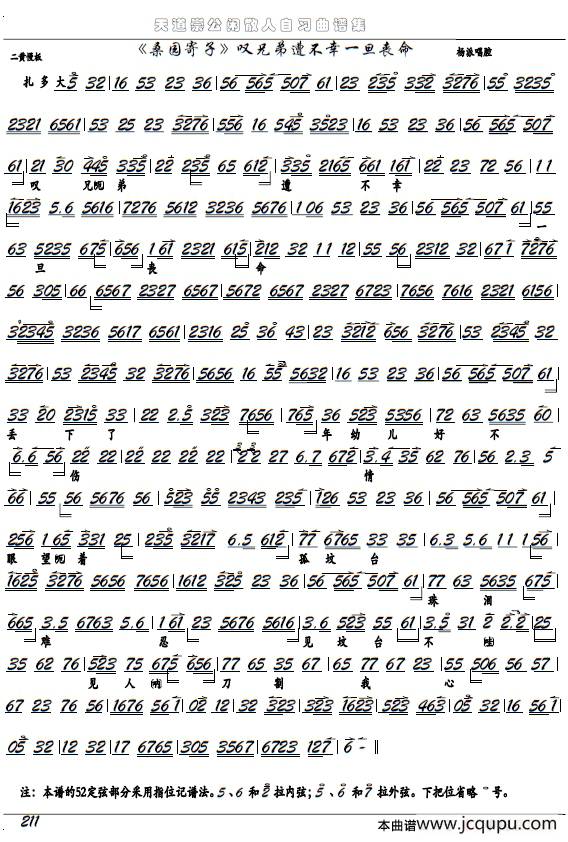 天道崇公闲散人自习曲谱集
《桑园寄子》叹兄弟遭不幸一旦丧命
二黄慢板 杨派唱腔
扎 多 大 5 32|16 53 23 36|56 565 507 61|23 235 332 3276|55 3235
2321 6561|53 25 23 3276|556 16 545 3523|16 53 23 36|56 565 507
61|21 30 445 335|22 235 65 612|335 2165 661 161|22 23 72 56|11
叹 兄(呃)弟 遭 不 幸
1623 5.6 5616|7276 5612 3236 5676|106 53 23 36|56 565 507 61|55
一
63 5235 675|656 161 2321 615|212 32 11 12|55 56 2312 32|671 7276
旦 丧 命
56 305|66 6567 2327 6567|5672 6567 2327 6723|7656 7616 2321 6156
32345 3236 5617 6561|2316 25 36 43|23 3212 656 3276|53 2345 32
3276|53 2345 32 3276|5656 16 55 5632|16 53 23 36|56 565 507 61
33 20 2315 33|22 2.5 323 7656|765 36 523 5356|72 63 5635 60
丢 下 了 年 幼 儿 好 不
6.6 56|22 22|22 22|22 22|22 27 6.7 672|3.4 35 62 76|56 2.3 5
伤 情
66|55 56 5676 56|523 55 2343 235|126 53 23 36|56 565 507 61|
256 165 331 25|235 3217 6.5 612|77 6765 33 35|6.3 5.6 11 156
眼 望(呃)着 孤 坟 台
1625 3276 5656 7656|1612 325 23 36|56 565 507 61|77 63 5635 675
珠 泪
665 3.5 6763 5.6|161 23 5676 5616|3.6 523 55 61|3.5 31 2 2.2|25
难 忍 见 坟 台 不
35 62 76|523 75 675 656|77 65 35 67|65 77 23 25|55 506 56 57
见 人(呐) 刀 割 我 心
67 23 76 56|1676 561|02 12 32|323 323 1623|523 463|05 32 16 561
05 32|12 32|17 6765|305 3567|6723 127|6 -‖
注：本谱的52定弦部分采用指位记谱法。5、6 和 2 拉内弦；5、6 和 7 拉外弦。下把位省略 号。
211 本曲谱www.jcqupu.com